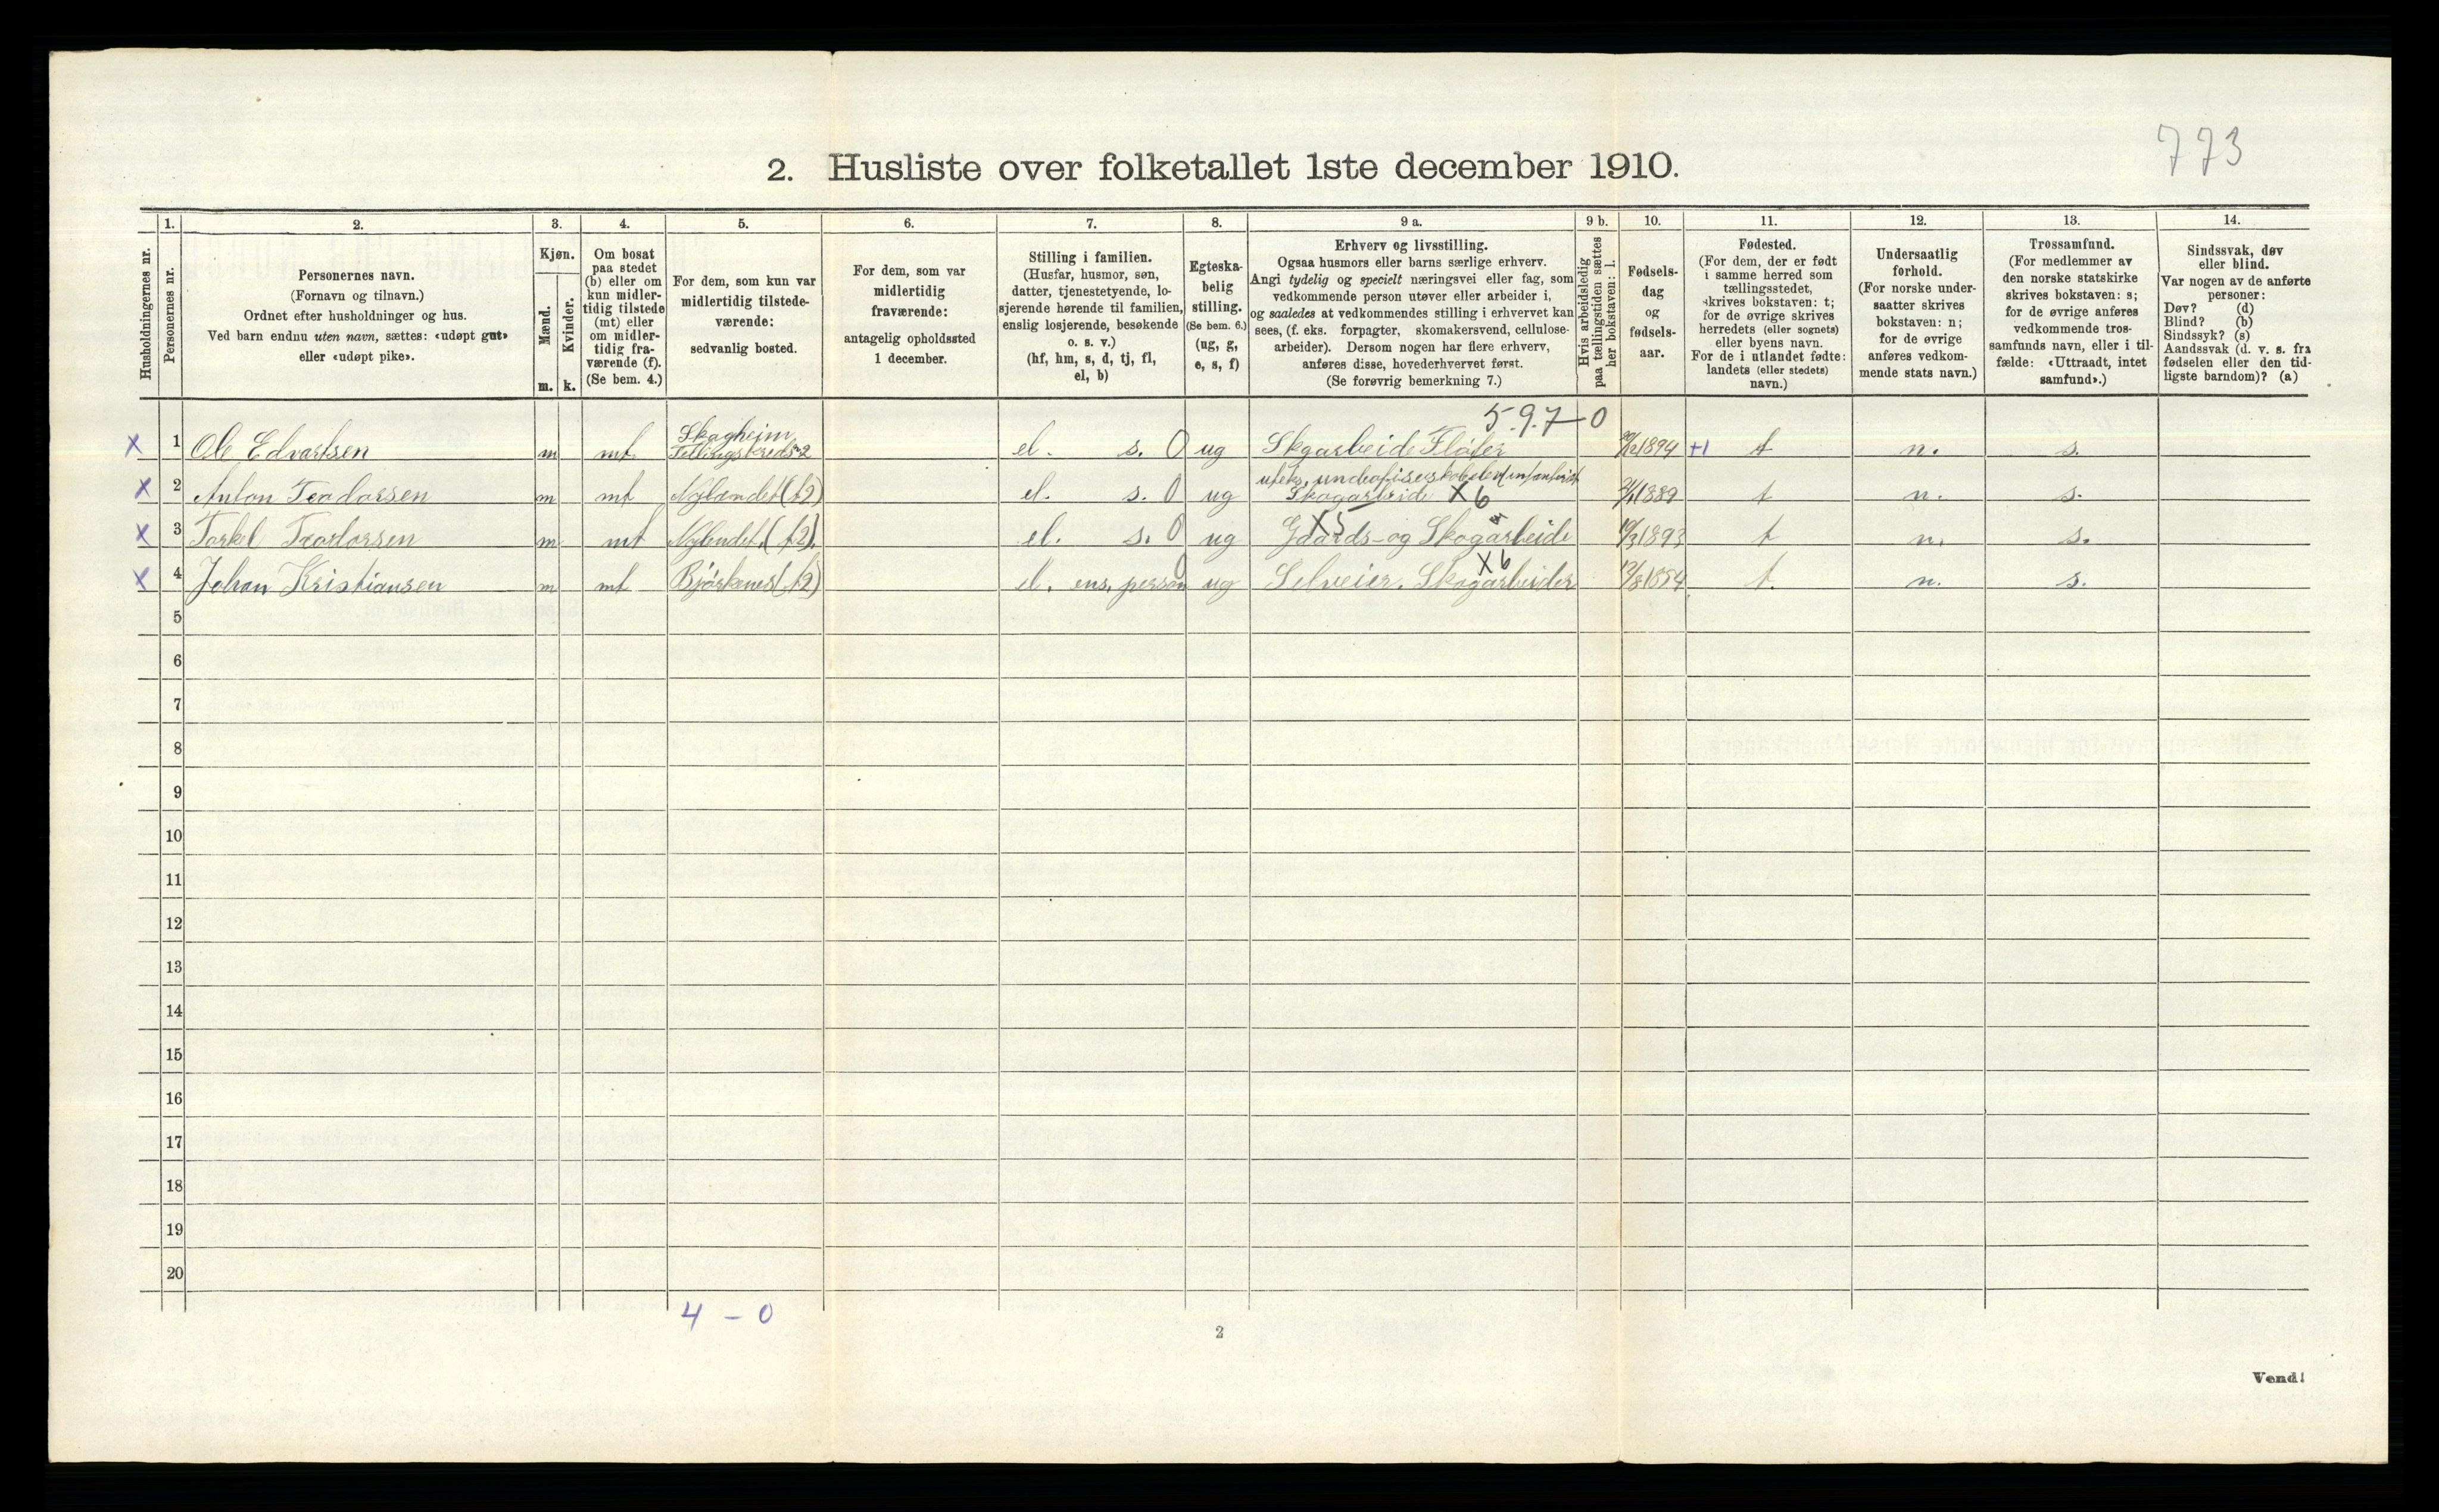 773
2. Husliste over folketallet 1ste december 1910.
Husholdningernes nr.
1.
Personernes nr.
2.
Personernes navn.
(Fornavn og tilnavn.)
Ordnet efter husholdninger og hus.
Ved barn endnu uten navn, sættes: «udøpt gut»
eller «udøpt pike».
3.
Kjøn.
Mænd.
Kvinder.
m. k.
4.
Om bosat
paa stedet
(b) eller om
kun midler-
tidig tilstede
(mt) eller
om midler-
tidig fra-
værende (f).
(Se bem. 4.)
5.
For dem, som kun var
midlertidig tilstede-
værende:
sedvanlig bosted.
6.
For dem, som var
midlertidig
fraværende:
antagelig opholdssted
1 december.
7.
Stilling i familien.
(Husfar, husmor, søn,
datter, tjenestetyende, lo-
sjerende hørende til familien,
enslig losjerende, besøkende
o. s. v.)
(hf, hm, s, d, tj, fl,
el, b)
8.
Egteska-
belig
stilling.
(Se bem. 6.)
(ug, g,
e, s, f)
9 a.
Erhverv og livsstilling.
Ogsaa husmors eller barns særlige erhverv.
Angi tydelig og specielt næringsvei eller fag, som
vedkommende person utøver eller arbeider i,
og saaledes at vedkommendes stilling i erhvervet kan
sees, (f. eks. forpagter, skomakersvend, cellulose-
arbeider). Dersom nogen har flere erhverv,
anføres disse, hovederhvervet først.
(Se forøvrig bemerkning 7.)
9 b.
Hvis arbeidsledig
paa tællingstiden sættes
her bokstaven: l.
10.
Fødsels-
dag
og
fødsels-
aar.
11.
Fødested.
(For dem, der er født
i samme herred som
tællingsstedet,
skrives bokstaven: t;
for de øvrige skrives
herredets (eller sognets)
eller byens navn.
For de i utlandet fødte:
landets (eller stedets)
navn.)
12.
Undersaatlig
forhold.
(For norske under-
saatter skrives
bokstaven: n;
for de øvrige
anføres vedkom-
mende stats navn.)
13.
Trossamfund.
(For medlemmer av
den norske statskirke
skrives bokstaven: s;
for de øvrige anføres
vedkommende tros-
samfunds navn, eller i til-
fælde: «Uttraadt, intet
samfund».)
14.
Sindssvak, døv
eller blind.
Var nogen av de anførte
personer:
Døv? (d)
Blind? (b)
Sindssyk? (s)
Aandssvak (d. v. s. fra
fødselen eller den tid-
ligste barndom)? (a)
5.9.7-0
Skogheim
x 1 Ole Edvartsen m mt Tellingskreds 2 el. s. 0 ug Skgarbeide Fløter 1894 +1 t n. s.
x 2 Anton Teodorsen m mt Nylandet (t2) el. s. 0 ug Skogarbeide x6 1889 t n. s.
x 3 Torkel Teodorsen m mt Nylendet (t2). el. s. 0 ug x5 Gaards- og Skogarbeide 10/3 1893 t n. s.
x 4 Johan Kristiansen m mt Bjørknes (t2) el. ens. person 0 ug Selveier. Skogarbeider x6 12/8 1854 t. n. s.
5
6
7
8
9
10
11
12
13
14
15
16
17
18
19
20
4 - 0
2
Vend!